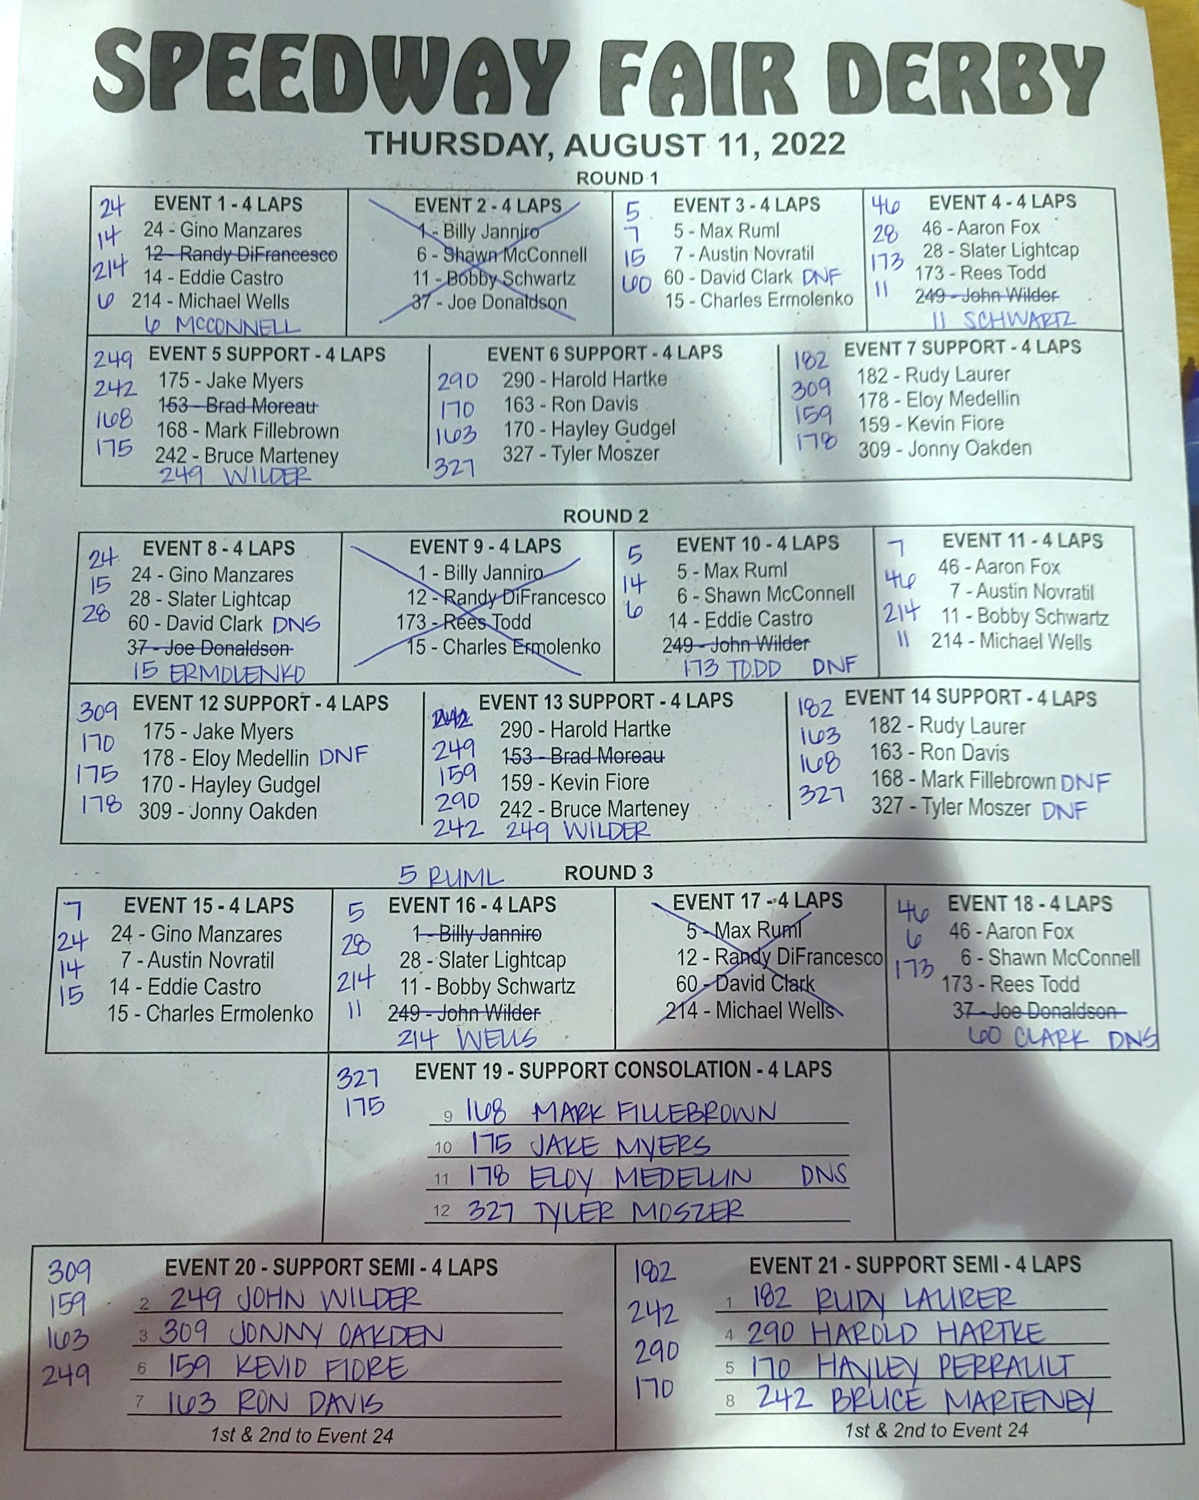 SPEEDWAY FAIR DERBY
THURSDAY, AUGUST 11, 2022
ROUND 1
24
14
214
6
EVENT 1 - 4 LAPS
24 - Gino Manzares
12 - Randy DiFrancesco
14 - Eddie Castro
214 - Michael Wells
6 MCCONNELL
EVENT 2 - 4 LAPS
1 - Billy Janniro
6 - Shawn McConnell
11 - Bobby Schwartz
37 - Joe Donaldson
5
7
15
60
EVENT 3 - 4 LAPS
5 - Max Ruml
7 - Austin Novratil
60 - David Clark DNF
15 - Charles Ermolenko
46
28
173
11
EVENT 4 - 4 LAPS
46 - Aaron Fox
28 - Slater Lightcap
173 - Rees Todd
249 - John Wilder
11 SCHWARTZ
249
242
168
175
EVENT 5 SUPPORT - 4 LAPS
175 - Jake Myers
153 - Brad Moreau
168 - Mark Fillebrown
242 - Bruce Marteney
249 WILDER
290
170
163
327
EVENT 6 SUPPORT - 4 LAPS
290 - Harold Hartke
163 - Ron Davis
170 - Hayley Gudgel
327 - Tyler Moszer
182
309
159
178
EVENT 7 SUPPORT - 4 LAPS
182 - Rudy Laurer
178 - Eloy Medellin
159 - Kevin Fiore
309 - Jonny Oakden
ROUND 2
24
15
28
EVENT 8 - 4 LAPS
24 - Gino Manzares
28 - Slater Lightcap
60 - David Clark DNS
37 - Joe Donaldson
15 ERMOLENKO
EVENT 9 - 4 LAPS
1 - Billy Janniro
12 - Randy DiFrancesco
173 - Rees Todd
15 - Charles Ermolenko
5
14
6
EVENT 10 - 4 LAPS
5 - Max Ruml
6 - Shawn McConnell
14 - Eddie Castro
249 - John Wilder
173 TODD DNF
7
46
214
11
EVENT 11 - 4 LAPS
46 - Aaron Fox
7 - Austin Novratil
11 - Bobby Schwartz
214 - Michael Wells
309
170
175
178
EVENT 12 SUPPORT - 4 LAPS
175 - Jake Myers
178 - Eloy Medellin DNF
170 - Hayley Gudgel
309 - Jonny Oakden
249
159
290
242
EVENT 13 SUPPORT - 4 LAPS
290 - Harold Hartke
153 - Brad Moreau
159 - Kevin Fiore
242 - Bruce Marteney
249 WILDER
182
163
168
327
EVENT 14 SUPPORT - 4 LAPS
182 - Rudy Laurer
163 - Ron Davis
168 - Mark Fillebrown DNF
327 - Tyler Moszer DNF
5 RUML
ROUND 3
7
24
14
15
EVENT 15 - 4 LAPS
24 - Gino Manzares
7 - Austin Novratil
14 - Eddie Castro
15 - Charles Ermolenko
5
28
214
11
EVENT 16 - 4 LAPS
1 - Billy Janniro
28 - Slater Lightcap
11 - Bobby Schwartz
249 - John Wilder
214 WELLS
EVENT 17 - 4 LAPS
5 - Max Ruml
12 - Randy DiFrancesco
60 - David Clark
214 - Michael Wells
46
6
173
EVENT 18 - 4 LAPS
46 - Aaron Fox
6 - Shawn McConnell
173 - Rees Todd
37 - Joe Donaldson
60 CLARK DNS
327
175
EVENT 19 - SUPPORT CONSOLATION - 4 LAPS
9 168 MARK FILLEBROWN
10 175 JAKE MYERS
11 178 ELOY MEDELLIN DNS
12 327 TYLER MOSZER
309
159
163
249
EVENT 20 - SUPPORT SEMI - 4 LAPS
2 249 JOHN WILDER
3 309 JONNY OAKDEN
6 159 KEVID FIORE
7 163 RON DAVIS
1st & 2nd to Event 24
182
242
290
170
EVENT 21 - SUPPORT SEMI - 4 LAPS
1 182 RUDY LAURER
4 290 HAROLD HARTKE
5 170 HAYLEY PERRAULT
8 242 BRUCE MARTENEY
1st & 2nd to Event 24